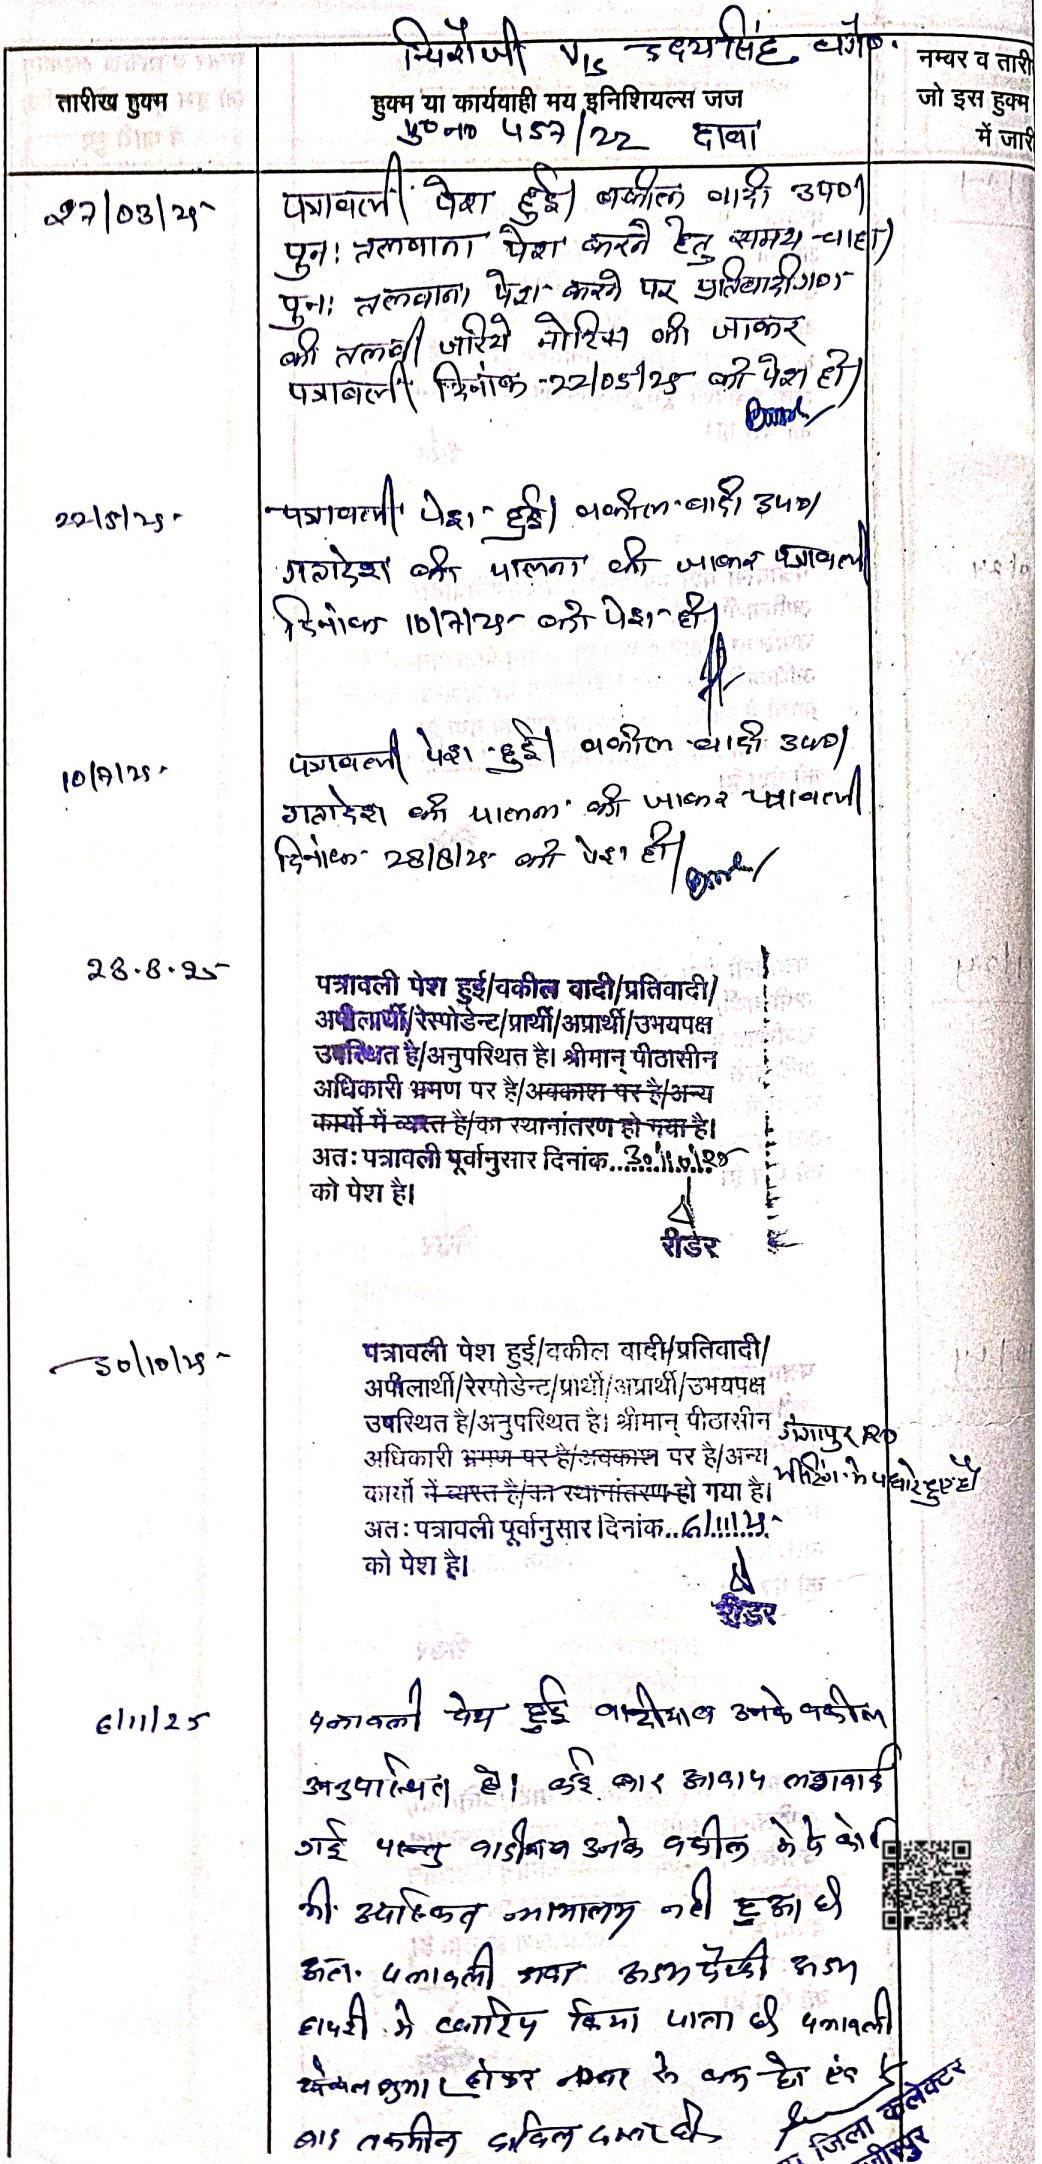 चिरौंजी V/s उदयसिंह वगै०
नम्बर व तारी
तारीख हुक्म
हुक्म या कार्यवाही मय इनिशियल्स जज
जो इस हुक्म
मु०न० 457/22 दावा
में जारी
27/03/25
पत्रावली पेश हुई। वकील वादी उप०।
पुनः तलवाना पेश करने हेतु समय चाहा।
पुनः तलवाना पेश करने पर प्रतिवादीगण
की तलबी जरिये नोटिस की जाकर
पत्रावली दिनांक 22/05/25 को पेश हो।
22/5/25
पत्रावली पेश हुई। वकील वादी उप०।
गतादेश की पालना की जाकर पत्रावली
दिनांक 10/7/25 को पेश हो।
10/7/25
पत्रावली पेश हुई। वकील वादी उप०।
गतादेश की पालना की जाकर पत्रावली
दिनांक 28/8/25 को पेश हो।
28.8.25
पत्रावली पेश हुई/वकील वादी/प्रतिवादी/
अपीलार्थी/रेस्पोडेन्ट/प्रार्थी/अप्रार्थी/उभयपक्ष
उपस्थित है/अनुपस्थित है। श्रीमान् पीठासीन
अधिकारी भ्रमण पर है/अवकाश पर है/अन्य
कार्यो में व्यस्त है/का स्थानांतरण हो गया है।
अतः पत्रावली पूर्वानुसार दिनांक..30/10/25
को पेश है।
रीडर
30/10/25
पत्रावली पेश हुई/वकील वादी/प्रतिवादी/
अपीलार्थी/रेस्पोडेन्ट/प्रार्थी/अप्रार्थी/उभयपक्ष
उपस्थित है/अनुपस्थित है। श्रीमान् पीठासीन
गंगापुर RO
अधिकारी भ्रमण पर है/अवकाश पर है/अन्य
मीटिंग मे पधारे हुए है
कार्यो में व्यस्त है/का स्थानांतरण हो गया है।
अतः पत्रावली पूर्वानुसार दिनांक..6/11/25
को पेश है।
रीडर
6/11/25
पत्रावली पेश हुई वादीयान उनके वकील
अनुपस्थित है। कई बार आवाज लगवाई
गई परन्तु वादीगण उनके वकील मे से कोई
भी उपस्थित न्यायालय नही हुआ है
अतः पत्रावली अदम पैरवी अदम
हाजरी मे खारिज किया जाता है पत्रावली
फैसल शुमार होकर नम्बर से कम हो एवं
बाद तकमील दाखिल दफ्तर हो
जिला कलेक्टर